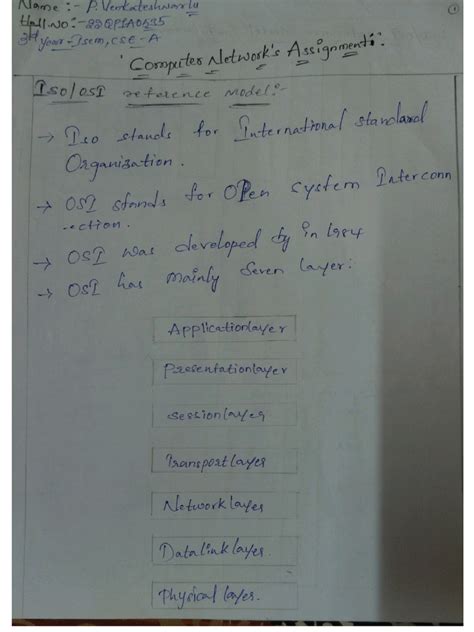 Name :- P. Venkateshwarlu
Hall.No :- 22QP1A0535
3rd year - Isem, CSE - A
"Computer Network's Assignment:-
ISO/OSI reference Model:-
→ Iso stands for International standard
Organization.
→ OSI stands for OPen System Interconn
-ection.
→ OSI was developed by in 1984
→ OSI has mainly Seven layer:
Applicationlayer
Presentationlayer
Sessionlayer
Transportlayer
Networklayer
Datalinklayer.
Physical layer.